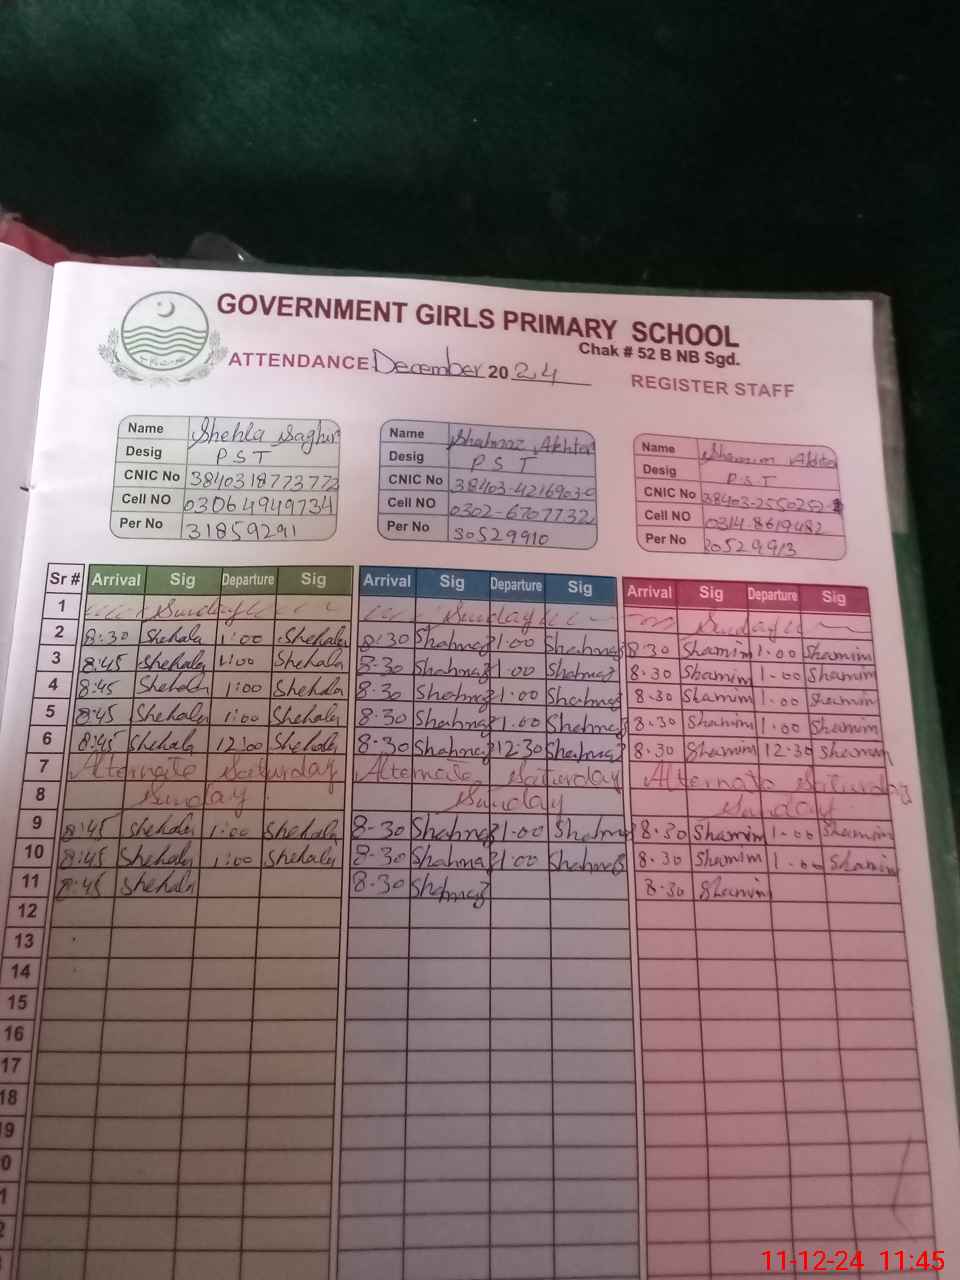 GOVERNMENT GIRLS PRIMARY SCHOOL
Chak # 52 B NB Sgd.
ATTENDANCE December 2024 REGISTER STAFF
Name Shehla Saghir Name Shahnaz Akhtar Name Shamim Akhtar
Desig P S T Desig P S T Desig P.S.T
CNIC No 3840318773772 CNIC No 38403-4216903-0 CNIC No
Cell NO 03064949734 Cell NO 0302-6707732 Cell NO 0314-8619482
Per No 31859291 Per No 30529910 Per No 30529913
Sr # Arrival Sig Departure Sig Arrival Sig Departure Sig Arrival Sig Departure Sig
1 Sunday Sunday Sunday
2 8:30 Shehala 1:00 Shehala 8:30 Shahnaz 1:00 Shahnaz 8:30 Shamim 1.00 Shamim
3 8:45 Shehala 1:00 Shehala 8-30 Shahnaz 1.00 Shahnaz 8.30 Shamim 1-00 Shamim
4 8:45 Shehala 1:00 Shehala 8.30 Shahnaz 1.00 Shahnaz 8.30 Shamim 1.00 Shamim
5 8:45 Shehala 1:00 Shehala 8.30 Shahnaz 1.00 Shahnaz 8.30 Shamim 1.00 Shamim
6 8:45 Shehala 12:00 Shehala 8.30 Shahnaz 12.30 Shahnaz 8.30 Shamim 12.30 Shamim
7 Alternate Saturday Alternate Saturday Alternate Saturday
8 Sunday Sunday Sunday
9 8:45 Shehala 1:00 Shehala 8-30 Shahnaz 1.00 Shahnaz 8.30 Shamim 1-00 Shamim
10 8:45 Shehala 1:00 Shehala 8-30 Shahnaz 1.00 Shahnaz 8.30 Shamim 1.00 Shamim
11 8:45 Shehala 8.30 Shahnaz 8.30 Shamim
12
13
14
15
16
17
18
19
0
1
2
11-12-24 11:45